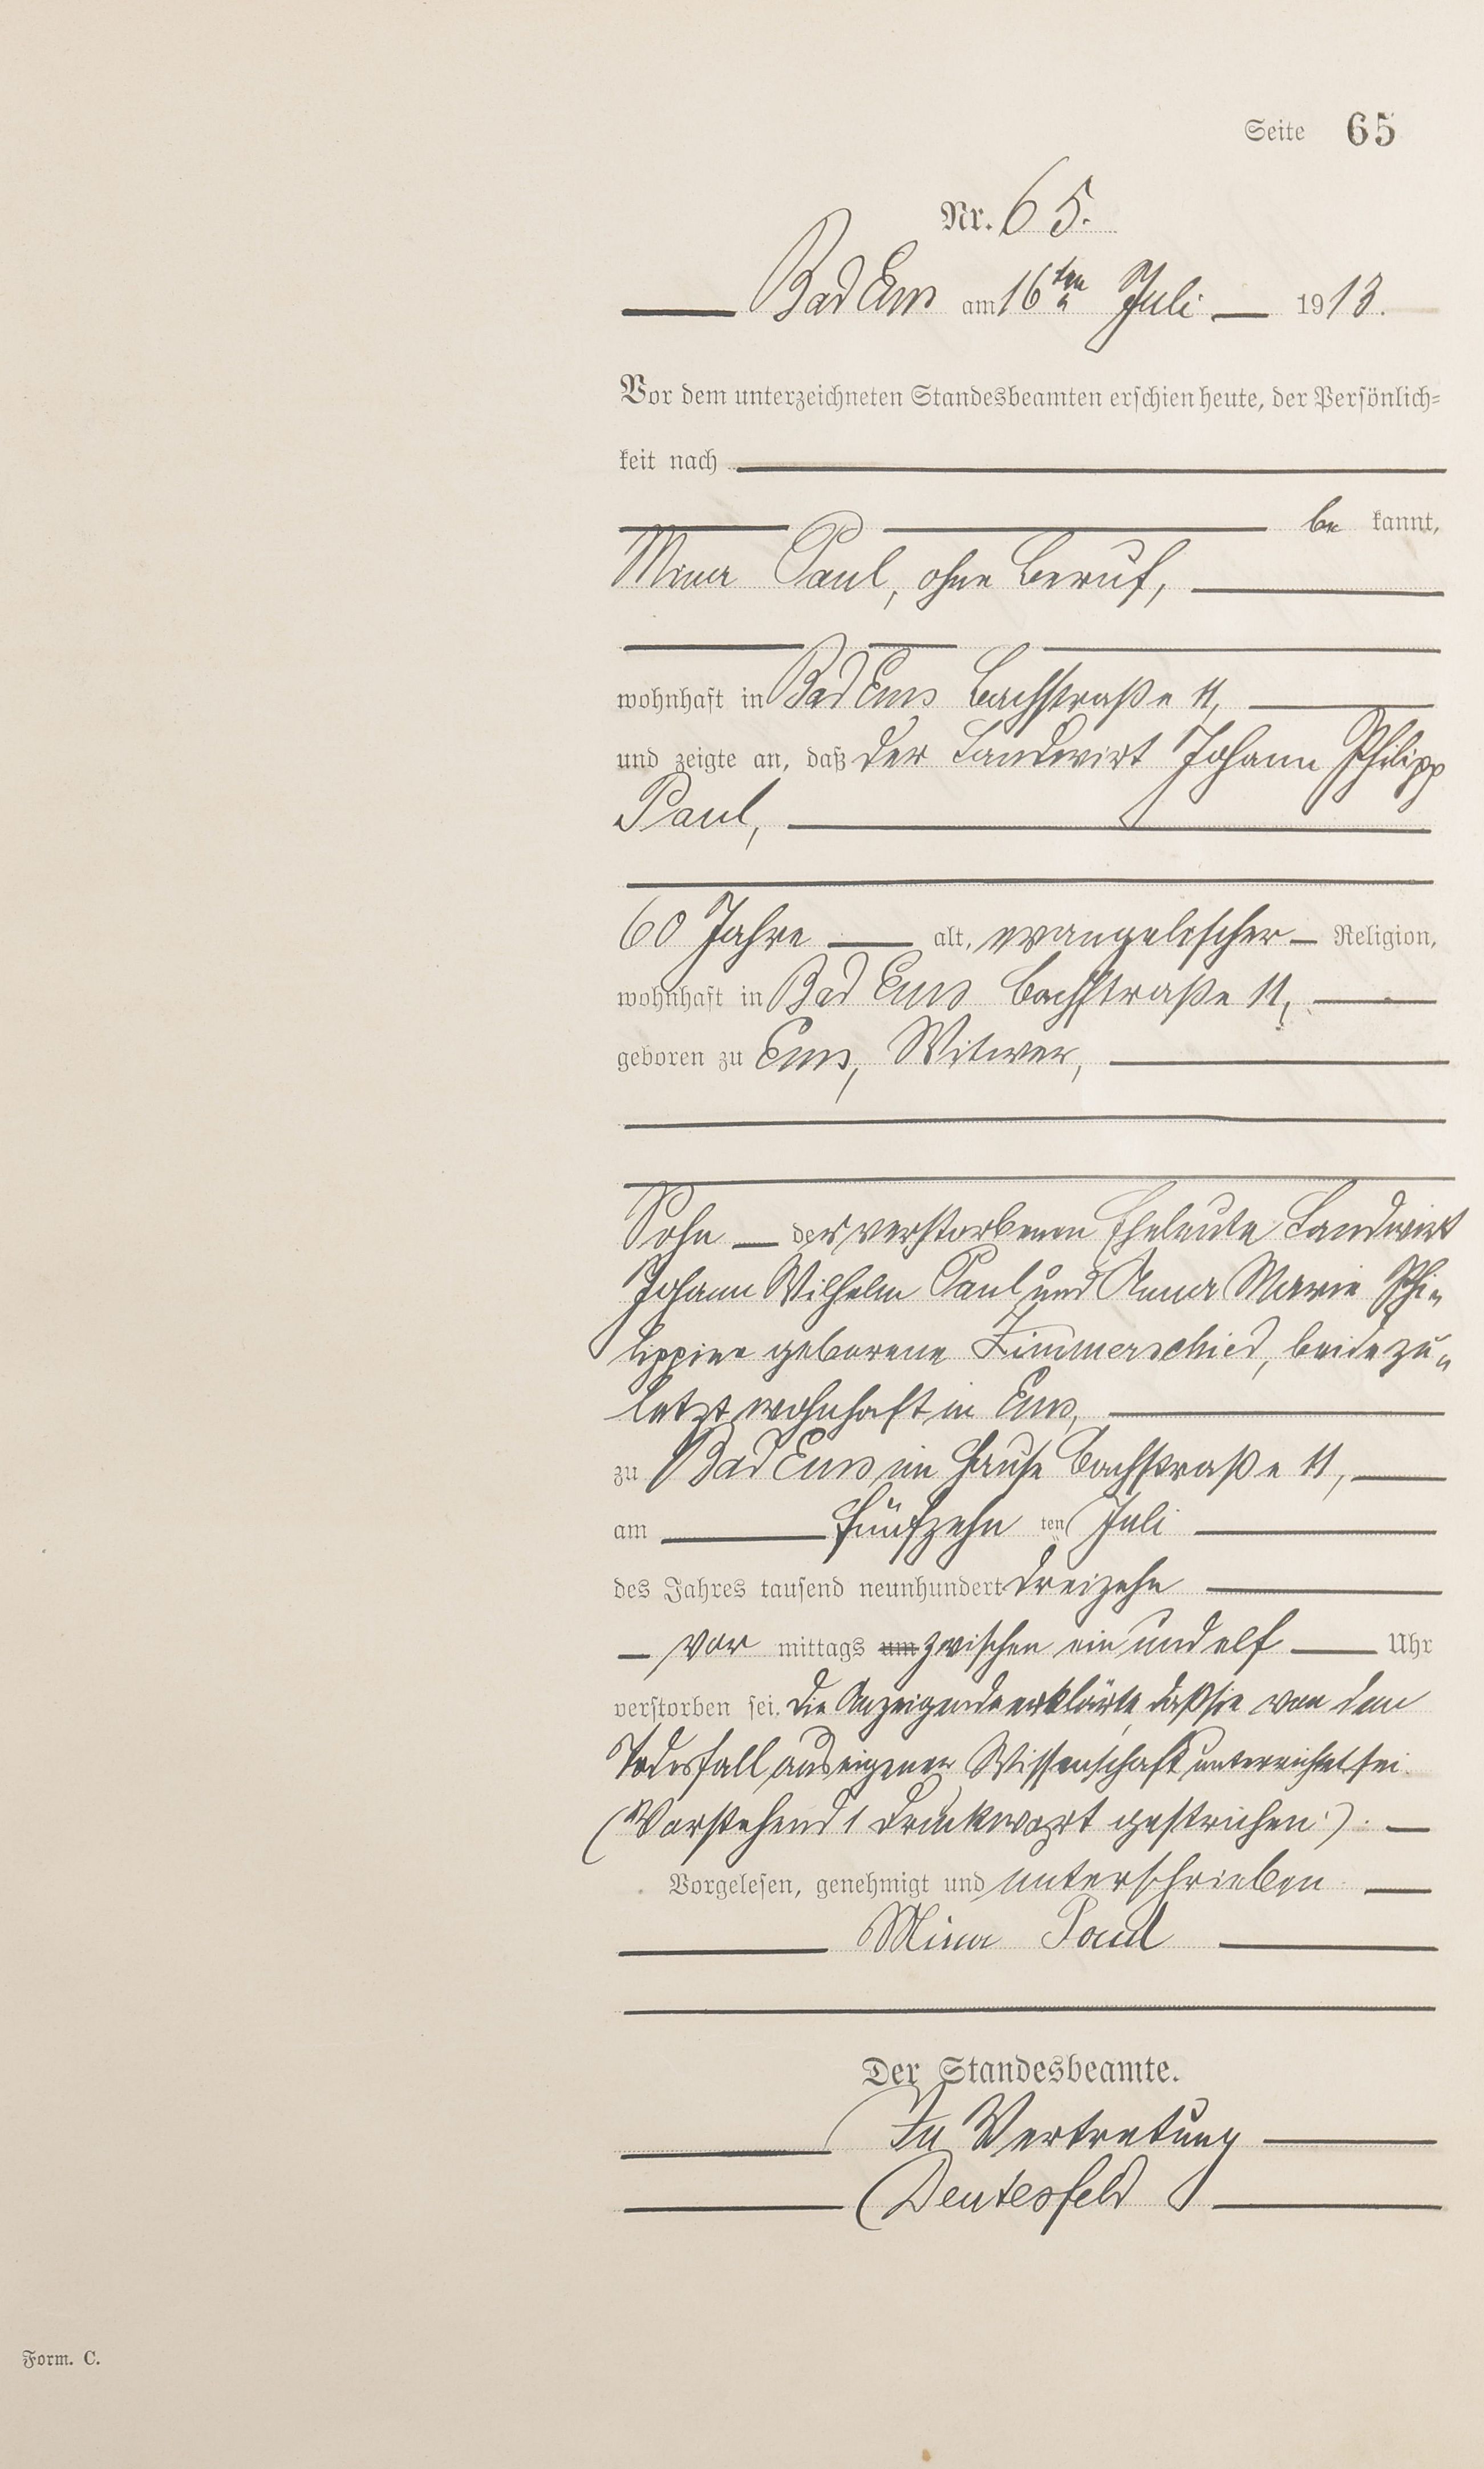 Seite 65
Nr. 65.
Bad Ems am 16ten Juli 1913.
Vor dem unterzeichneten Standesbeamten erschien heute, der Persönlich=
keit nach
be kannt,
Mina Paul, ohne Beruf,
wohnhaft in Bad Ems Bachstraße 11,
und zeigte an, daß der Landwirt Johann Philipp
Paul,
60 Jahre alt, evangelischer Religion,
wohnhaft in Bad Ems Bachstraße 11,
geboren zu Ems, Witwer,
Sohn der verstorbenen Eheleute Landwirt
Johann Wilhelm Paul und Anna Marie Phi„
lippine geborene Zimmerschied, beide zu„
letzt wohnhaft in Ems,
zu Bad Ems im Hause Bachstraße 11,
am fünfzehn ten Juli
des Jahres tausend neunhundert dreizehn
vor mittags um zwischen ein und elf Uhr
verstorben sei. Die Anzeigende erklärte, daß sie von dem
Todesfall aus eigener Wissenschaft unterrichtet sei.
(Vorstehend 1 Druckwort gestrichen.)
Vorgelesen, genehmigt und unterschrieben
Mina Paul
Der Standesbeamte.
In Vertretung
Deutesfeld
Form. C.